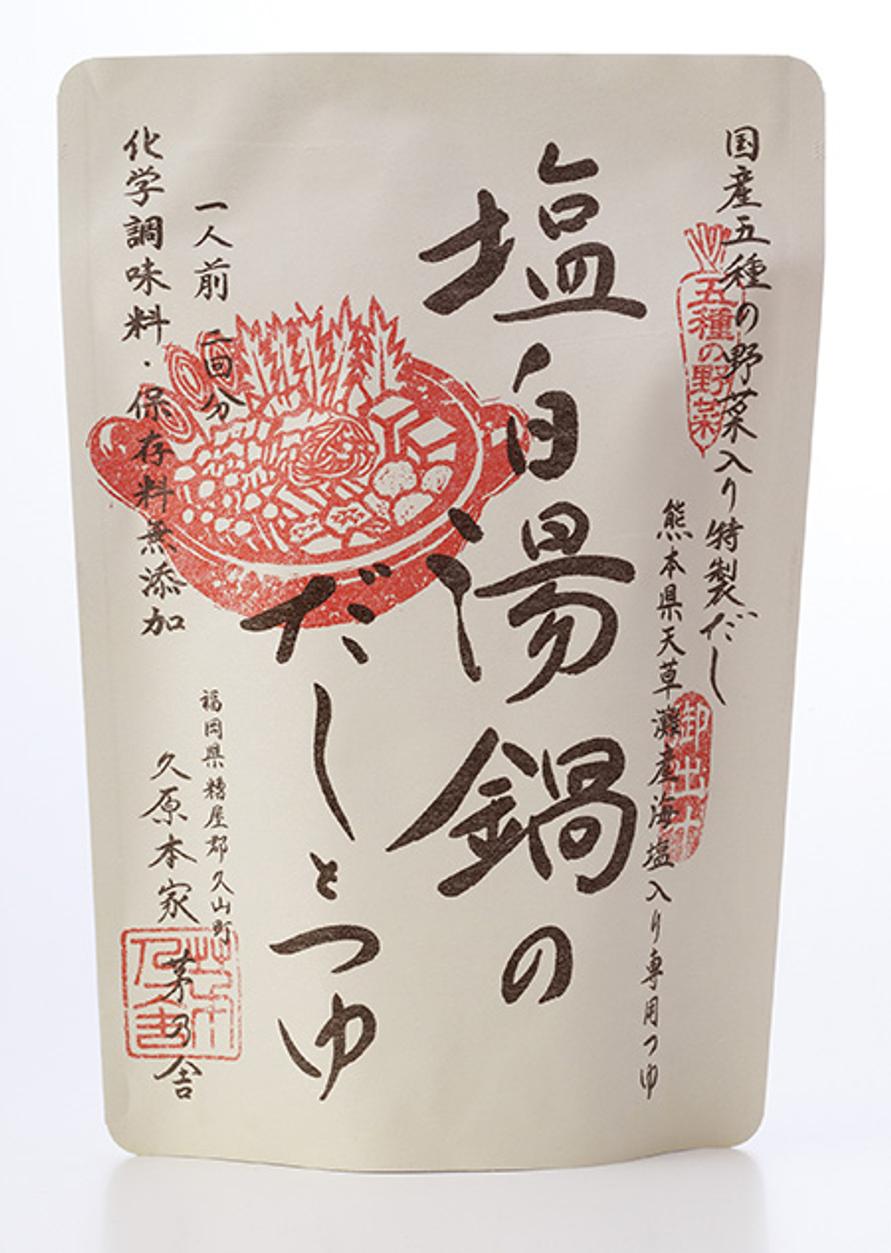 国産五種の野菜入り特製だし
五種の野菜
熊本県天草灘産海塩入り専用つゆ
塩白湯鍋の
だしとつゆ
一人前 二回分
化学調味料・保存料無添加
福岡県糟屋郡久山町
久原本家 茅乃舎